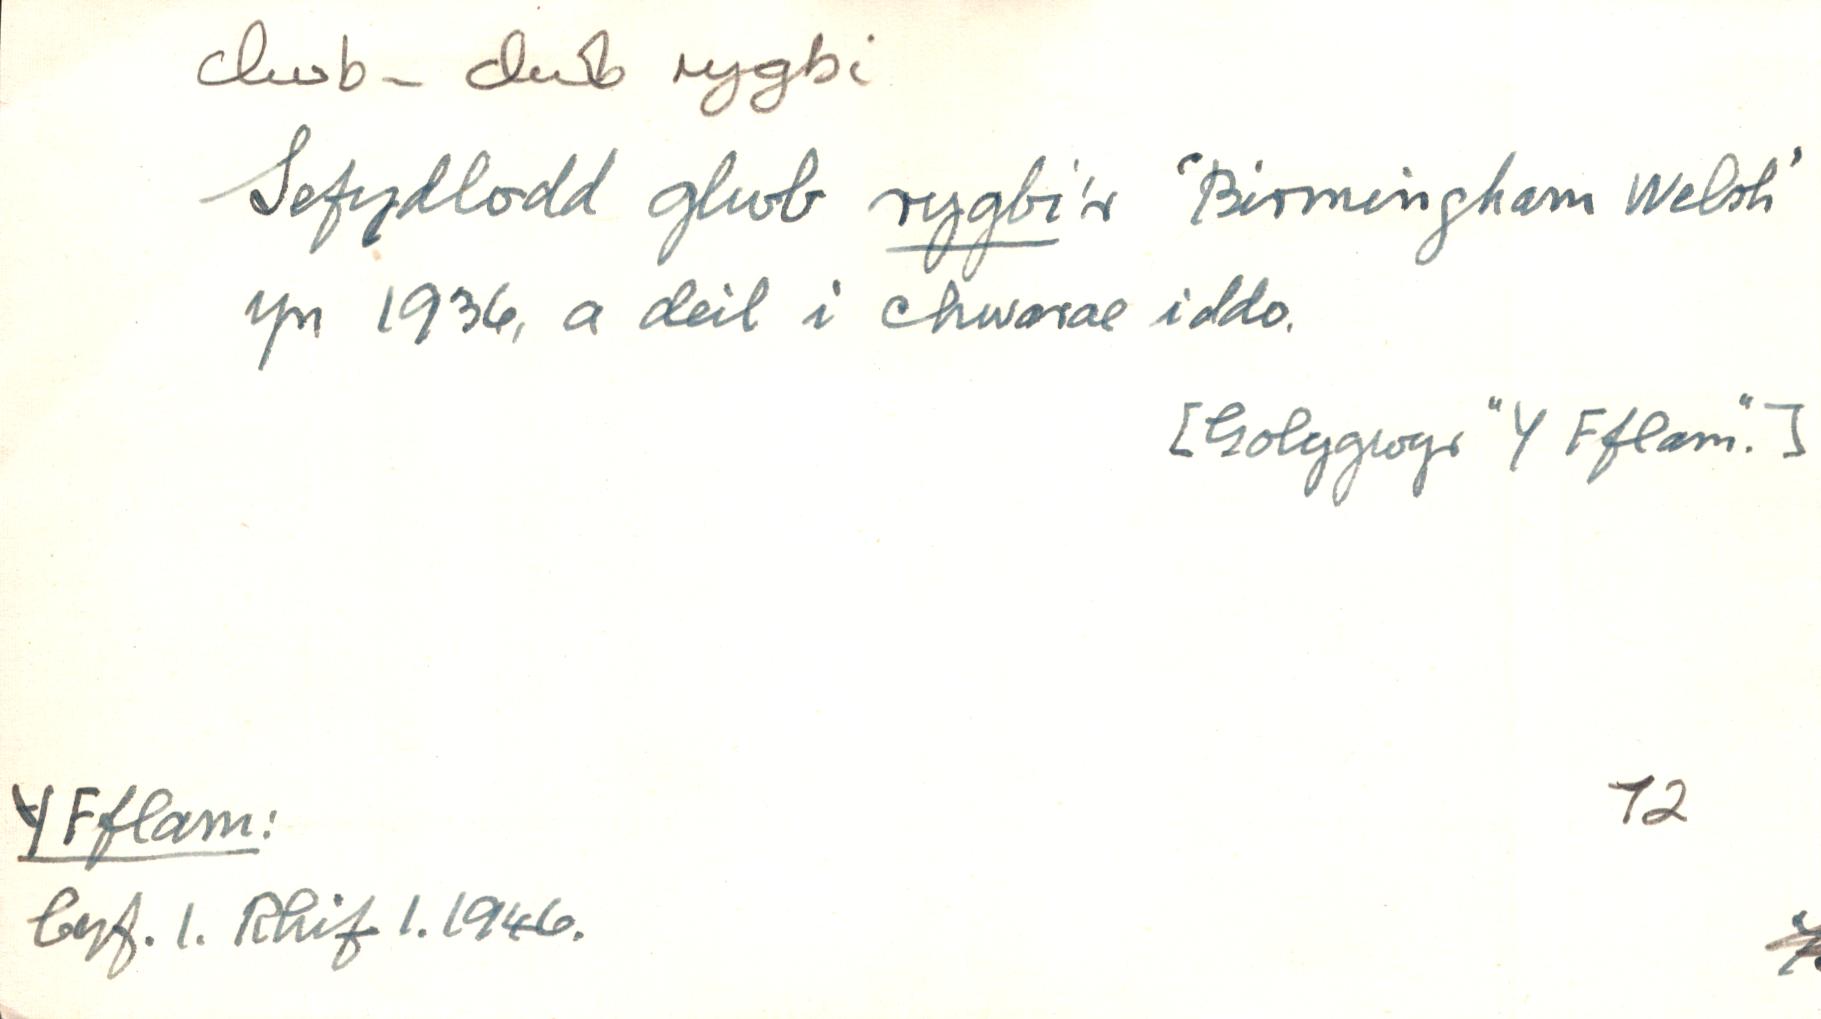 clwb - clwb rygbi
Sefydlodd glwb rygbi'r 'Birmingham Welsh'
yn 1936, a deil i chwarae iddo.
[Golygwyr "Y Fflam".]
Y Fflam:
12
Cyf. 1. Rhif 1. 1946.